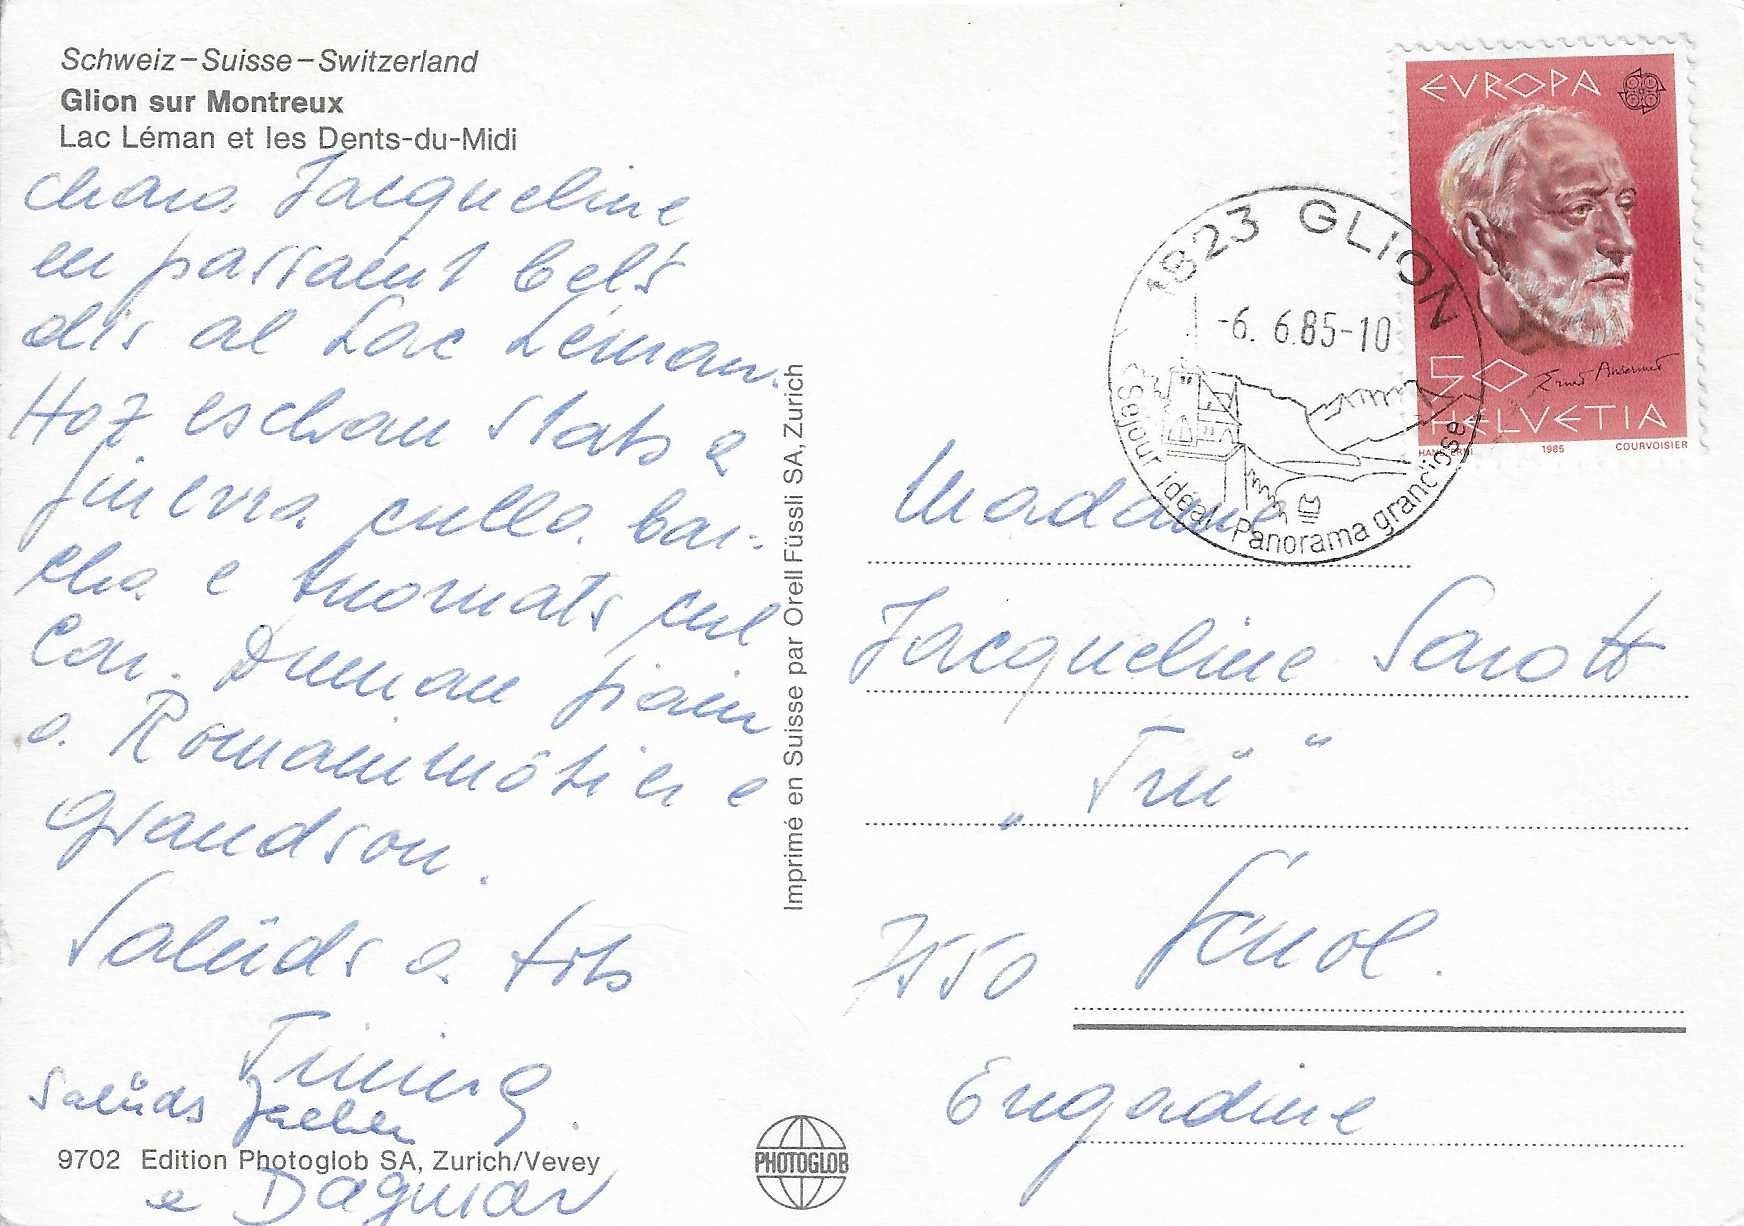 Schweiz – Suisse – Switzerland
Glion sur Montreux
Lac Léman et les Dents-du-Midi
chara Jacqueline
en passant bels
dis al Lac Léman.
Hoz eschan stats a
Ginevra culla bar-
cha e tuornats cul
car. Duman giain
a Romainmôtier e
Grandson.
Salüds a tots
Salüds
e Dagmar
9702 Edition Photoglob SA, Zurich/Vevey
Imprimé en Suisse par Orell Füssli SA, Zurich
PHOTOGLOB
EVROPA
50
Ernest Ansermet
HELVETIA
HANS ERNI 1985 COURVOISIER
1823 GLION
-6. 6.85-10
Séjour idéal Panorama grandiose
Madame
Jacqueline Sarott
„Trü“
7550 Scuol.
Engadine